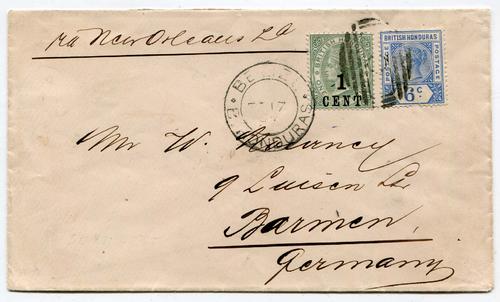 via New Orleans La
BRITISH HONDURAS
1
CENT
BRITISH HONDURAS
POSTAGE
POSTAGE
6c.
BELIZE
17
B. HONDURAS
Mr W.
9 Luisen Str
Barmen.
Germany